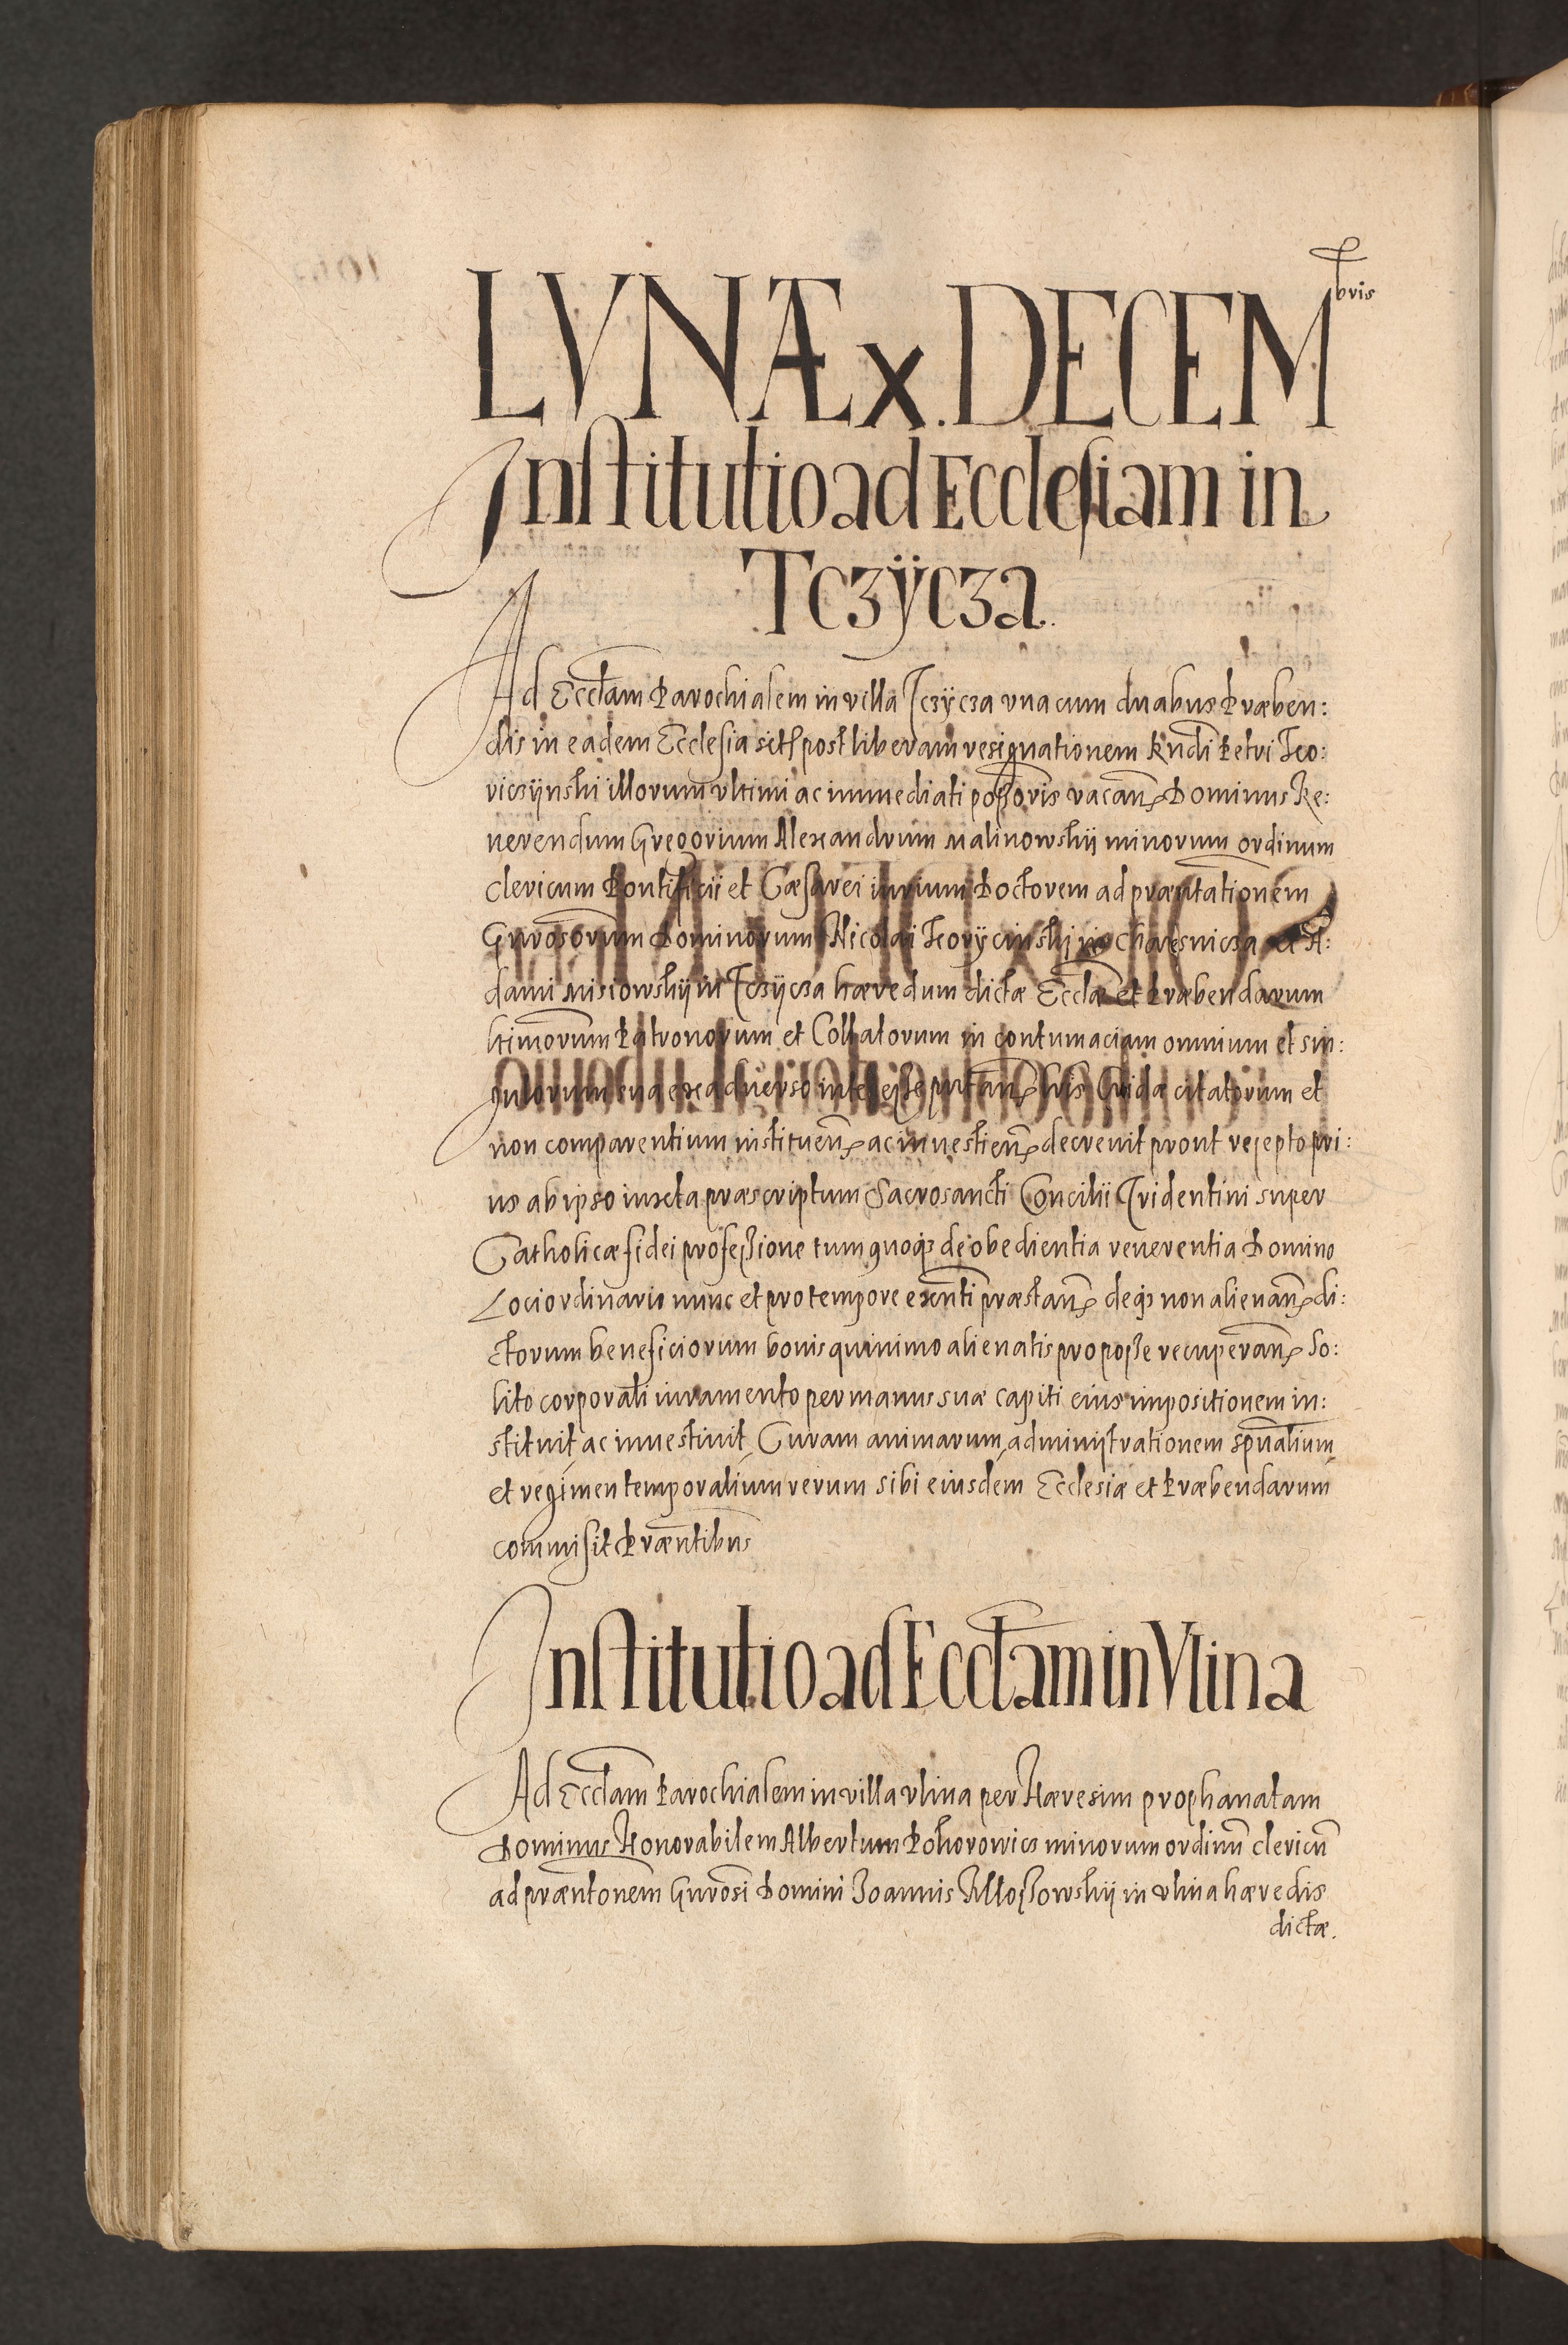 LVNÆ X. DECEMbris
Institutio ad Ecclesiam in
Tczÿcza.
Ad Ecctam Parochialem in villa Tczÿcza vna cum duabus Præben:
dis in eadem Ecclesia sitis post liberam resignationem Rndi Petri Teo:
riczÿnskii illorum vltimi ac immediati possoris vacan Dominus Re:
uerendum Gregorium Alexandrum Malinowskii minorum ordinum
clericum Pontificii et Cæsarei iurium Doctorem ad præntationem
Gnrosorum Dominorum Nicolai Teorÿcinski in et A:
dami Misiowskij in Tczÿcza hæredum dictæ Ecctæ et Præbendarum
ltimorum Patronorum et Collatorum in contumaciam omnium et sin:
gulorum sua ex aduerso interesse putan lris Cridæ citatorum et
non comparentium instituen ac inuestien decreuit prout recepto pri:
us ab ipso iuxta præscriptum Sacrosancti Concilii Tridentini super
Catholicæ fidei professione tum quoqz de obedientia reuerentia Domino
Loci ordinario nunc et pro tempore exenti præstan deqz non alienan di:
ctorum beneficiorum bonis quinimo alienatis pro posse recuperan So:
lito corporali iuramento per manus suæ capiti eius impositionem in:
stituit ac inuestiuit, Curam animarum, administrationem spualium,
et regimen temporalium rerum sibi eiusdem Ecclesiæ et Præbendarum
commisit Præntibus
Institutio ad Ecctam in Vlina
Ad Ecctam Parochialem in villa vlina per Hæresim prophanatam
Dominus Honorabilem Albertum Pohorowicz minorum ordinu clericu
ad præntonem Gnrosi Domini Joannis in vlina hæredis
dictæ.